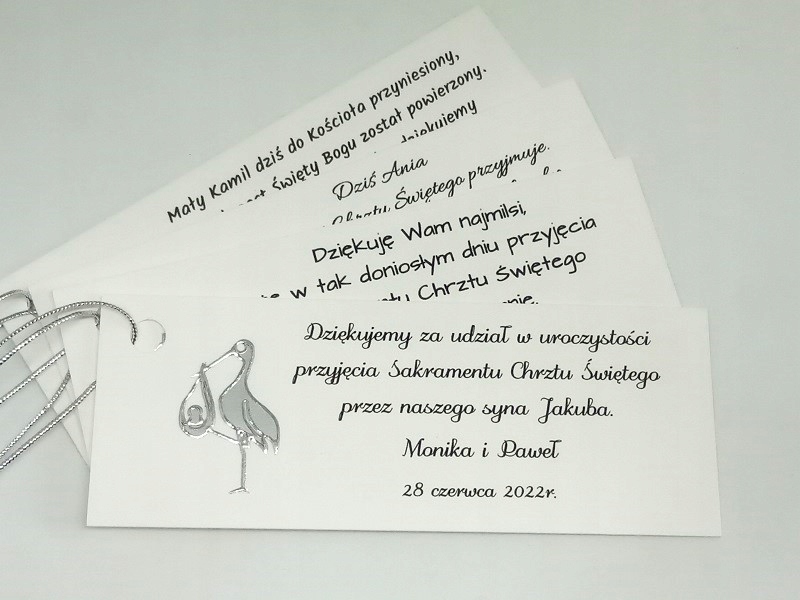 Mały Kamil dziś do Kościoła przyniesiony,
Święty Bogu został powierzony.
dziękujemy
Dziś Ania
Świętego przyjmuje.
Dziękuję Wam najmilsi,
w tak doniosłym dniu przyjęcia
Chrztu Świętego
Dziękujemy za udział w uroczystości
przyjęcia Sakramentu Chrztu Świętego
przez naszego syna Jakuba.
Monika i Paweł
28 czerwca 2022r.